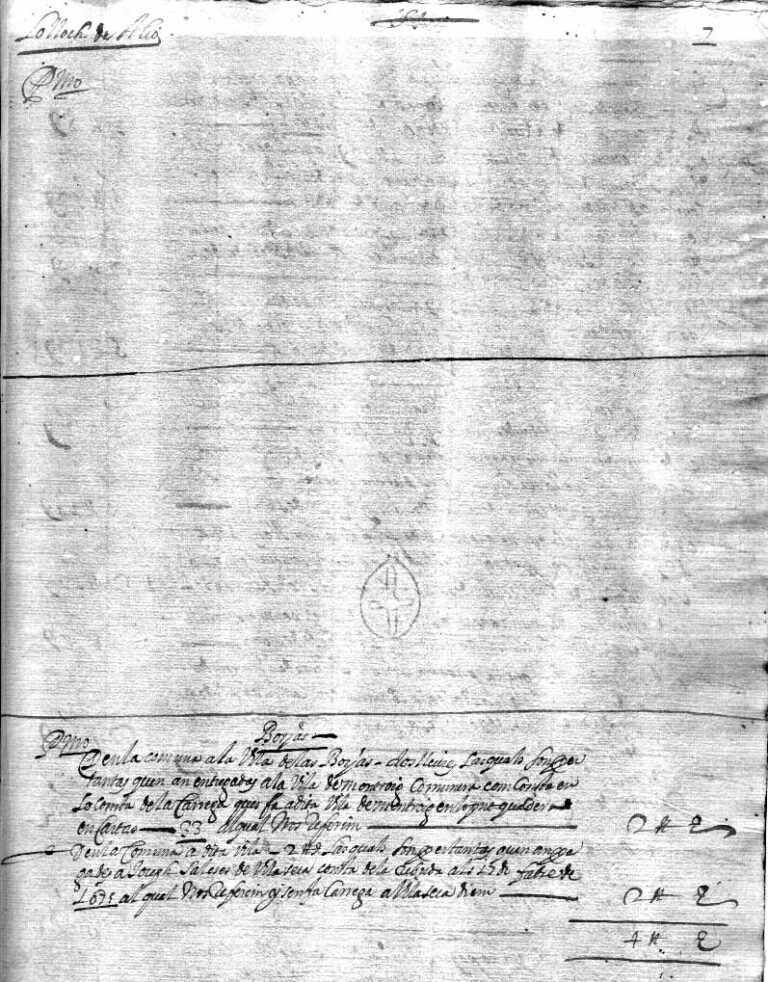 Lo lloch de Alió
7
P Mo
Borjas
P Mo
Deu la comuna a la Vila de las Borjas - dos lliures las quals son per
tantas quen an entregades a la Vila de montroig Comunera com consta en
lo Compte de la Carrega ques fa a dita Vila de montroig en lo quadern
en Cartas 33 al qual Nos referim 2 ₶ S
Deu la Comuna a dita Vila - 2 ₶ las quals son per tantas quen an pa
gades a Joseph Salses de Vilaseca consta de la als 15 de de
1675 al qual Nos referim y sen fa Carrega a Vilaseca 2 ₶ S
4 ₶ S